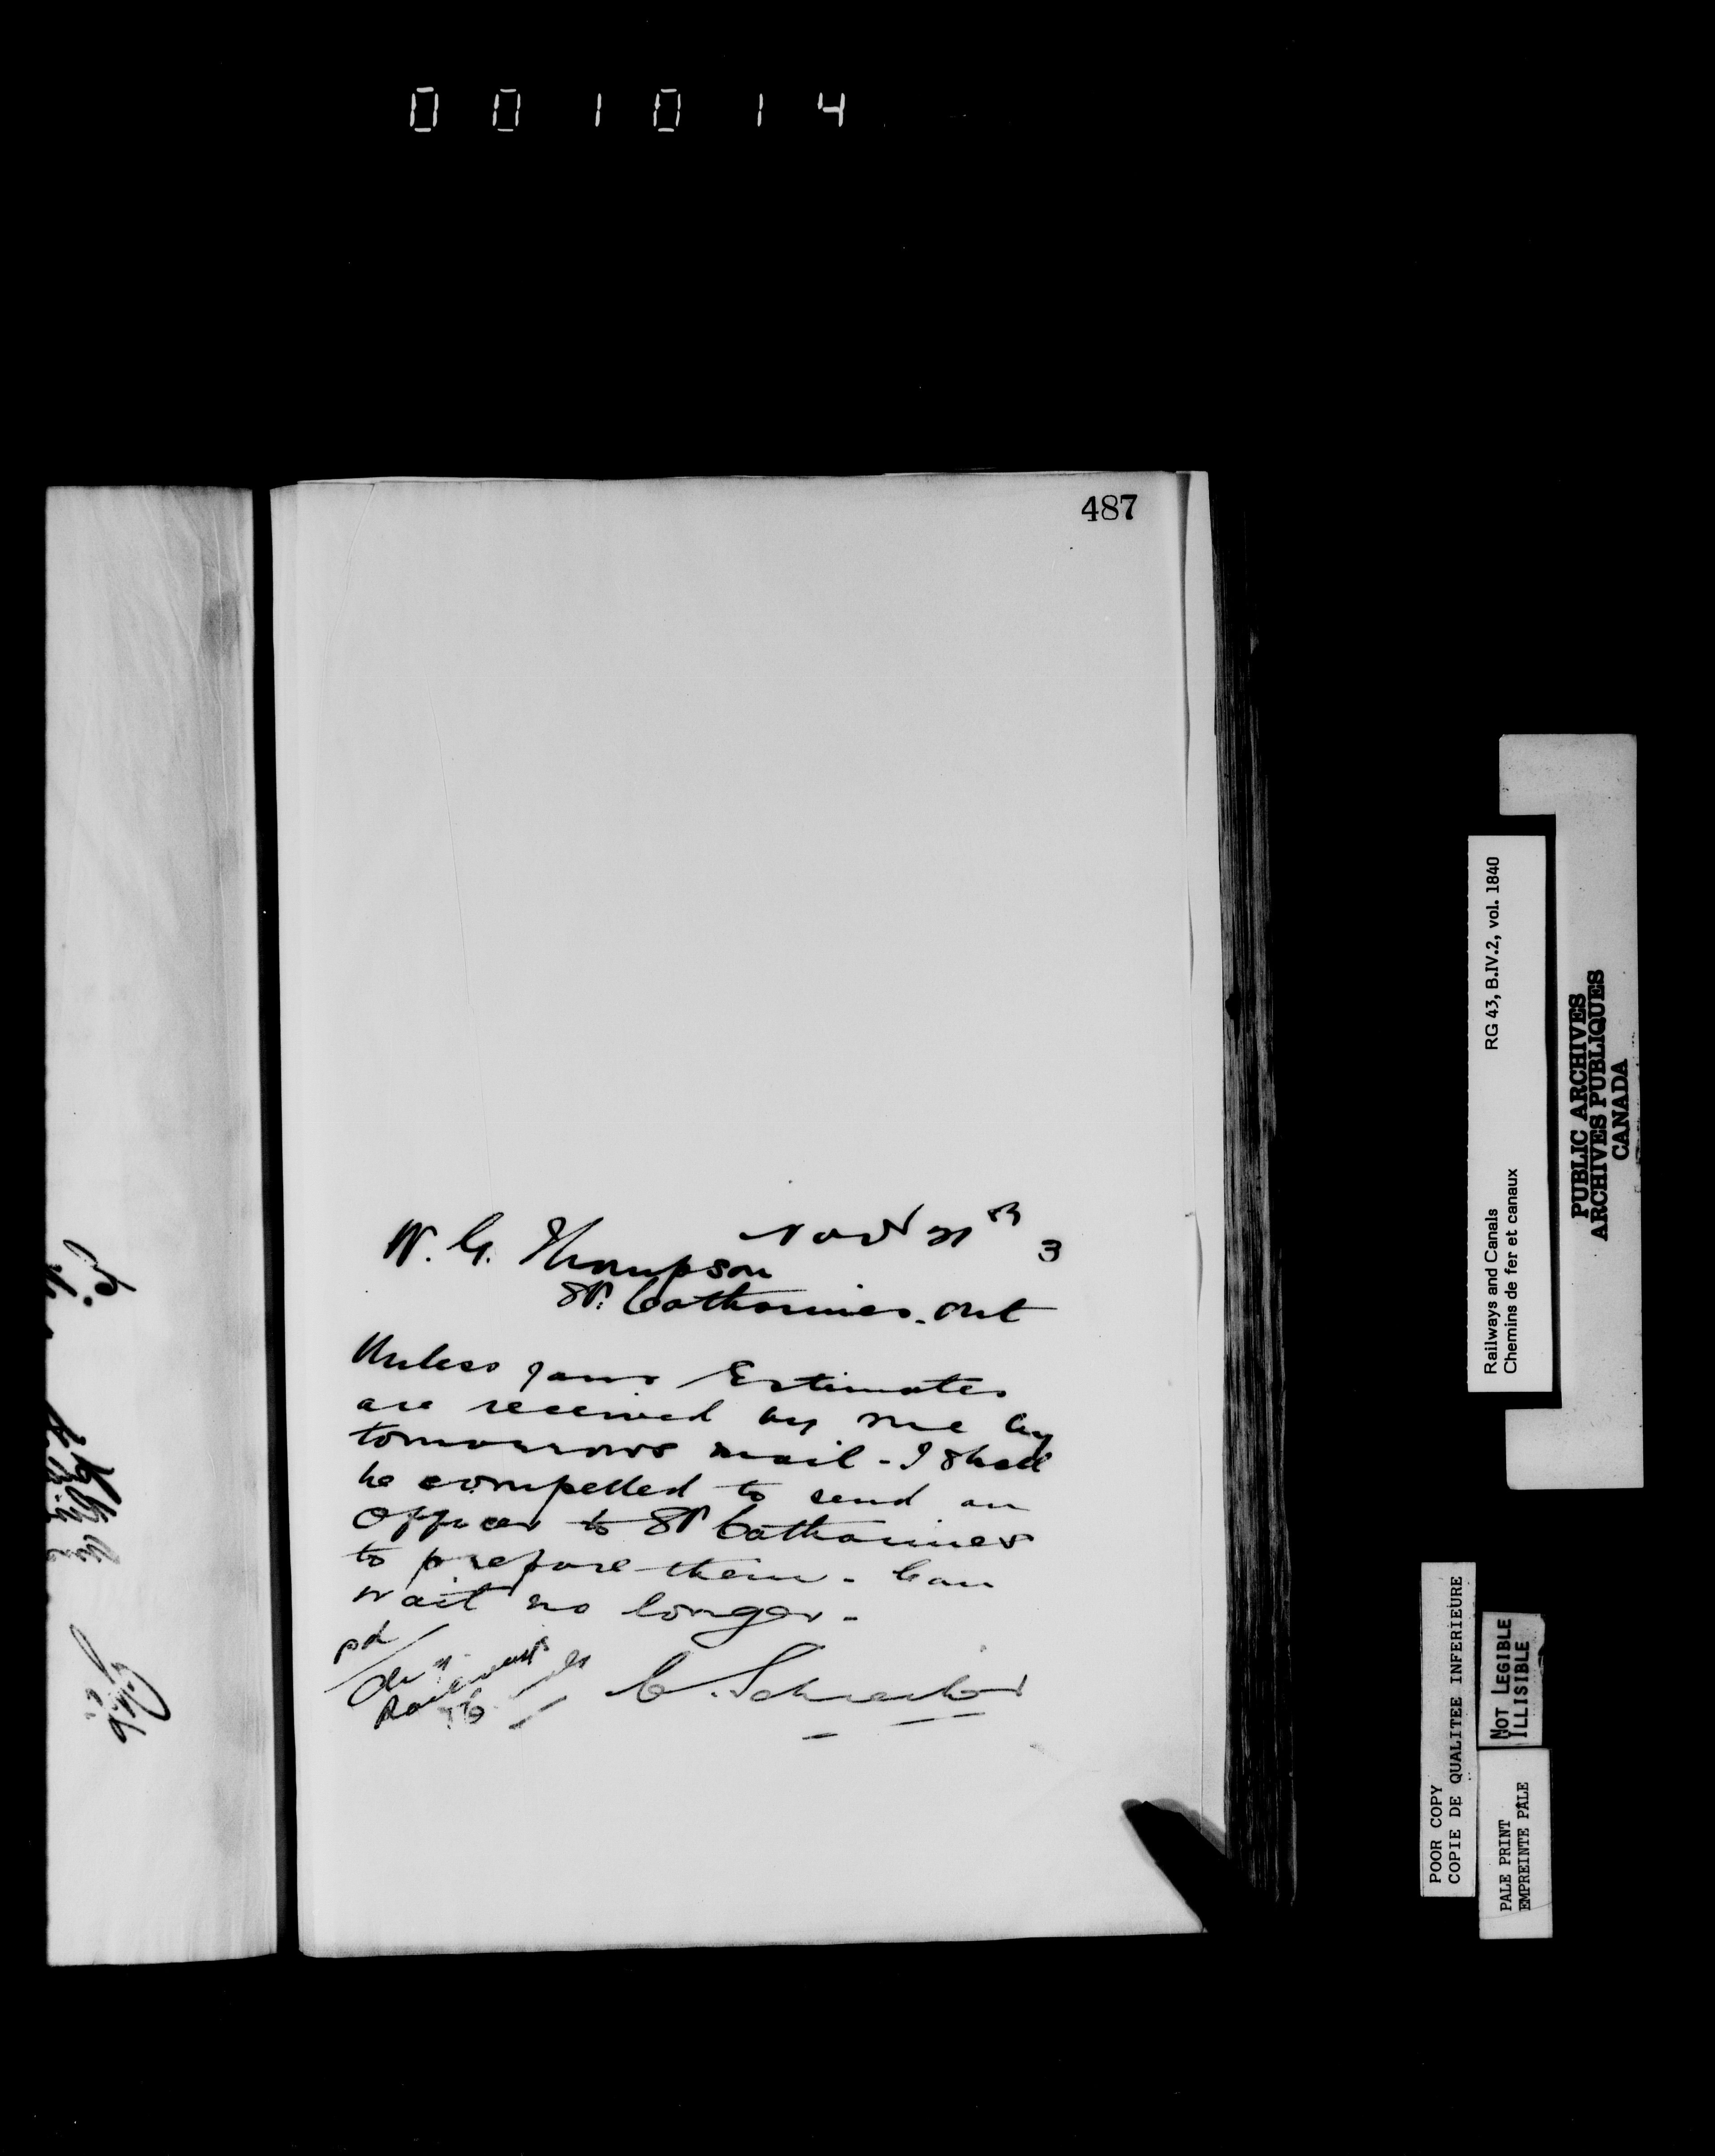 001014
487
Novr
3
W. G. Thompson
St. Catharines. Ont
Unless your Estimates
are received by me by
tomorrows mail - I shall
be compelled to send an
Officer to St Catharines
to prepare them. Can
wait no longer.
pd
C. Schreiber
Railways and Canals RG 43, B.IV.2, vol. 1840
Chemins de fer et canaux
PUBLIC ARCHIVES
ARCHIVES PUBLIQUES
CANADA
POOR COPY
COPIE DE QUALITEE INFERIEURE
NOT LEGIBLE
ILLISIBLE
PALE PRINT
EMPREINTE PALE